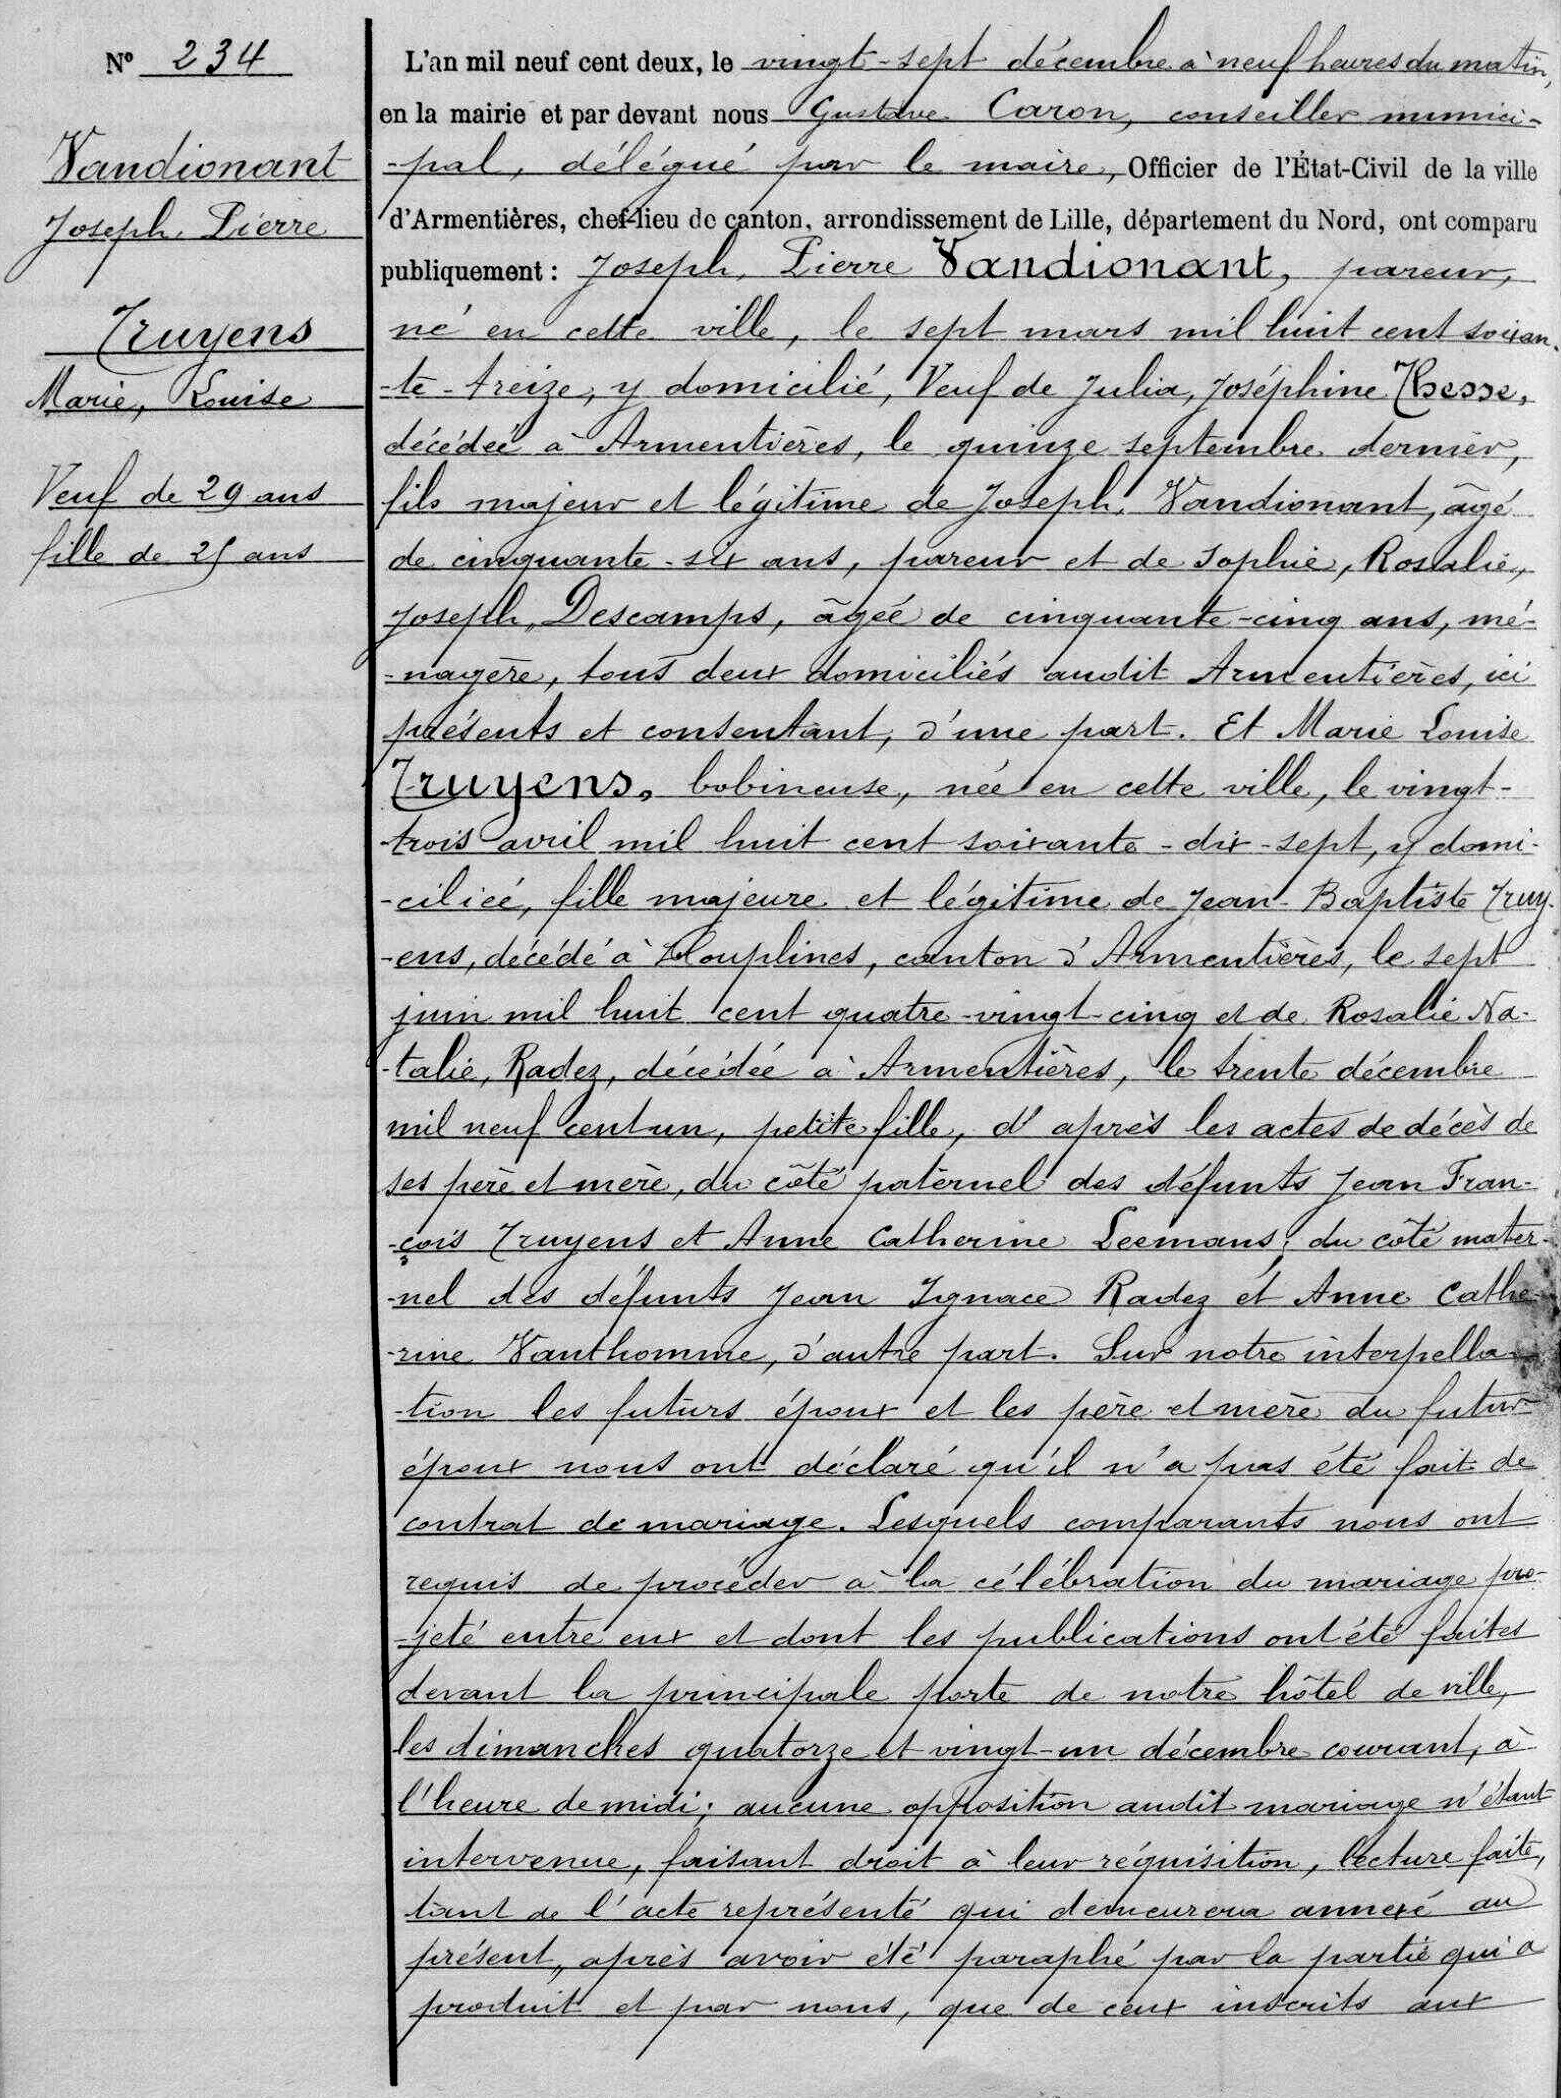 N° 234
Vandionant
Joseph, Pierre
Truyens
Marie, Louise
Veuf de 29 ans
fille de 25 ans
L'an mil neuf cent deux, le vingt-sept décembre à neuf heures du matin,
en la mairie et par devant nous Gustave Caron, conseiller munici-
-pal, délégué par le maire, Officier de l'État-Civil de la ville
d'Armentières, chef-lieu de canton, arrondissement de Lille, département du Nord, ont comparu
publiquement : Joseph, Pierre Vandionant, pareur,
né en cette ville, le sept mars mil huit cent soixan-
-te-treize, y domicilié, Veuf de Julia, Joséphine Thesse,
décédée à Armentières, le quinze septembre dernier,
fils majeur et légitime de Joseph, Vandionant, âgé
de cinquante-six ans, pareur et de Sophie, Rosalie,
Joseph, Descamps, âgée de cinquante-cinq ans, mé-
-nagère, tous deux domiciliés audit Armentières, ici
présents et consentant, d'une part. Et Marie Louise
Truyens, bobineuse, née en cette ville, le vingt-
-trois avril mil huit cent soixante-dix-sept, y domi-
-ciliée, fille majeure et légitime de Jean-Baptiste Truy-
-ens, décédé à Houplines, canton d'Armentières, le sept
juin mil huit cent quatre-vingt-cinq et de Rosalie Na-
-talie, Radez, décédée à Armentières, le trente décembre
mil neuf cent un, petite fille, d'après les actes de décès de
ses père et mère, du côté paternel des défunts Jean Fran-
-çois Truyens et Anne Catherine Leemans; du côté mater-
-nel des défunts Jean Ignace Radez et Anne Cathe-
-rine Vanthomme, d'autre part. Sur notre interpella-
-tion les futurs époux et les père et mère du futur
époux nous ont déclaré qu'il n'a pas été fait de
contrat de mariage. Lesquels comparants nous ont
requis de procéder à la célébration du mariage pro-
-jeté entre eux et dont les publications ont été faites
devant la principale porte de notre hôtel de ville,
les dimanches quatorze et vingt-un décembre courant, à
l'heure de midi; aucune opposition audit mariage n'étant
intervenue, faisant droit à leur réquisition, lecture faite,
tant de l'acte représenté qui demeurera annexé au
présent, après avoir été paraphé par la partie qui a
produit et par nous, que de ceux inscrits aux